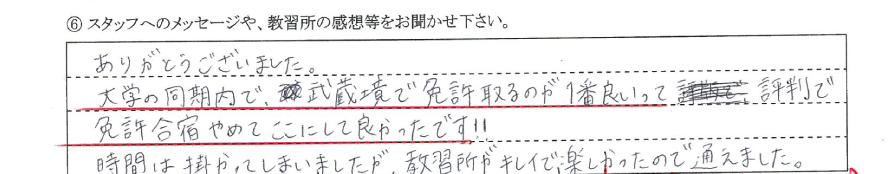 ⑥ スタッフへのメッセージや、教習所の感想等をお聞かせ下さい。
ありがとうございました。
大学の同期内で、武蔵境で免許取るのが1番良いって評判で
免許合宿やめてここにして良かったです!!
時間は掛かってしまいましたが、教習所がキレイで楽しかったので通えました。